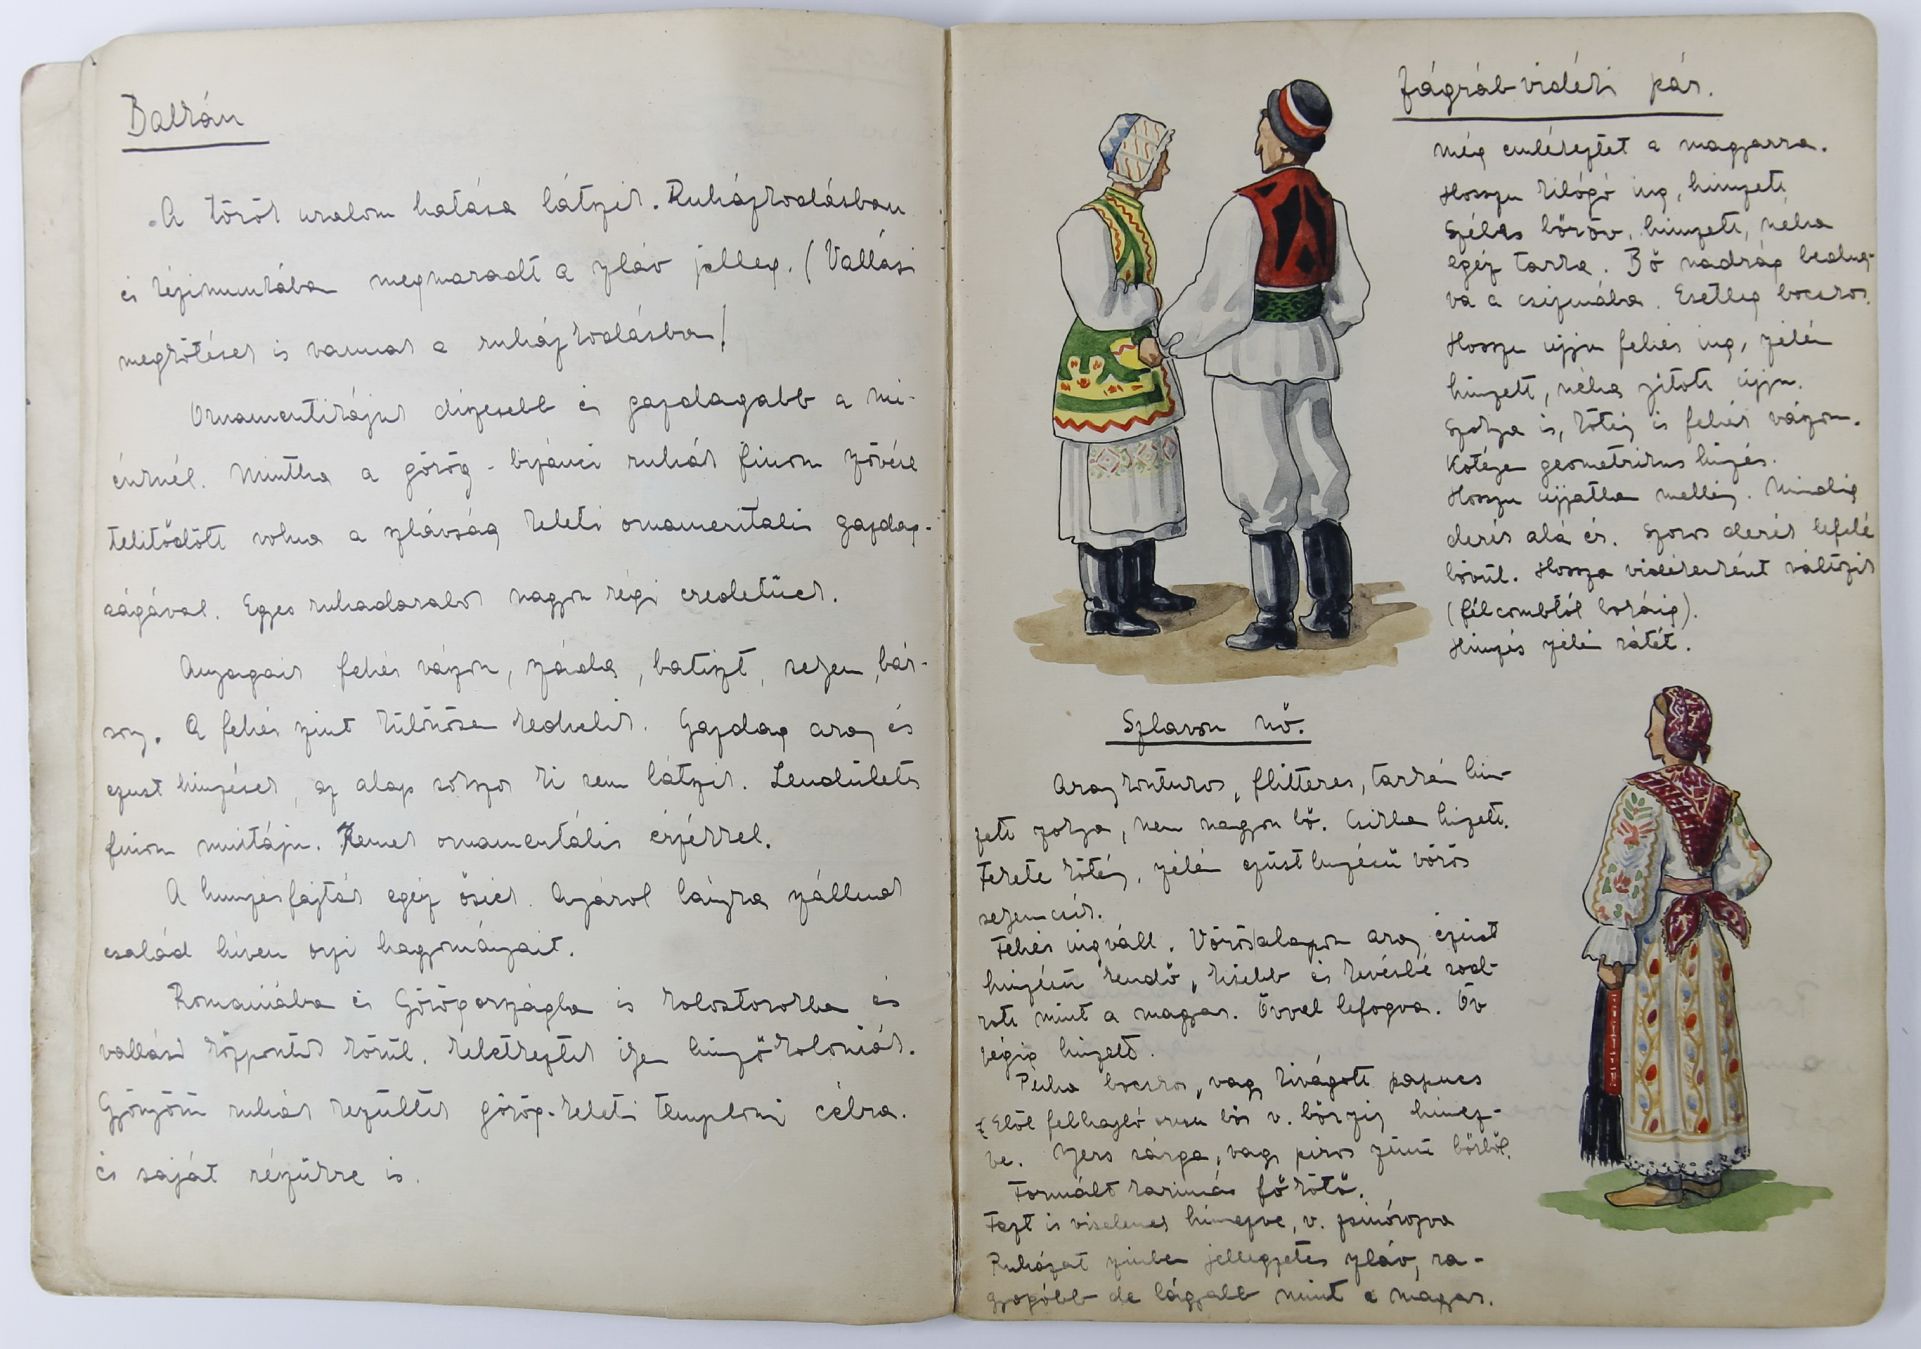 Balkán
A török uralom hatása látszik. Ruházkodásban
és kézimunkába megmaradt a szláv jelleg. (Vallási
megkötések is vannak a ruházkodásba!
Ornamentikájuk díszesebb és gazdagabb a mi-
énknél. Mintha a görög-bizánci ruhák finom szövése
telitődött volna a szlávság keleti ornamentális gazdag-
ságával. Egyes ruhadarabok nagyon régi eredetüek.
Anyagaik fehér vászon, batiszt, selyem, bár-
sony. A fehér szint különösen kedvelik. Gazdag arany és
ezust himzések, az alap sokszor ki sem látszik. Lendületes
finom mintáju. Remek ornamentális érzékkel.
A himzésfajták egész ősiek. Anyáról lányra szállnak
család híven őrzi hagyományait.
Romániába és Görögországba is kolostorokba és
vallási központok körül. keletkeztek ilyen himző koloniák.
Gyönyörü ruhák készültek görög-keleti templomi célra.
és saját részükre is.
Zágráb vidéki pár.
még emlékeztet a magyarra.
Hosszu kilógó ing, himzett
Széles böröv, himzett, néha
egész tarka. Bő nadrág bedug-
va a csizmába. Esetleg bocskor.
Hosszu ujju fehér ing, szélén
himzett, néha ujju.
Szoknya is, kötény is fehér vászon.
Kötényen geometrikus himzés.
Hosszu ujjatlan mellény. Mindig
derék alá ér. Szoros derék lefelé
bövül. Hossza vidékenként változik
(félcombtól bokáig).
Himzés szélén rátét.
Szlavon nő.
Arany konturos, flitteres, tarkán him-
zett szoknya, nem nagyon bő. Csipke himzett.
Fekete kötény, szélén ezüst himzésü vörös
selyem csík.
Fehér ingváll. Vörös alapon arany ezüst
himzésü kendő, kisebb és kevésbé rojt-
mint a magyar. Övvel lefogva. Öv
végig himzett.
Pécha bocskor, vagy kivágott papucs
Elöl felhajló orru bör v. börszíj himez-
ve. Nyers sárga, vagy piros szinü börböl.
Formált karimás főkötő.
Fezt is viselenek himezve, v. zsinórozva
Ruházat szinben jellegzetes szláv, ra-
gyogóbb de lágyabb mint a magyar.